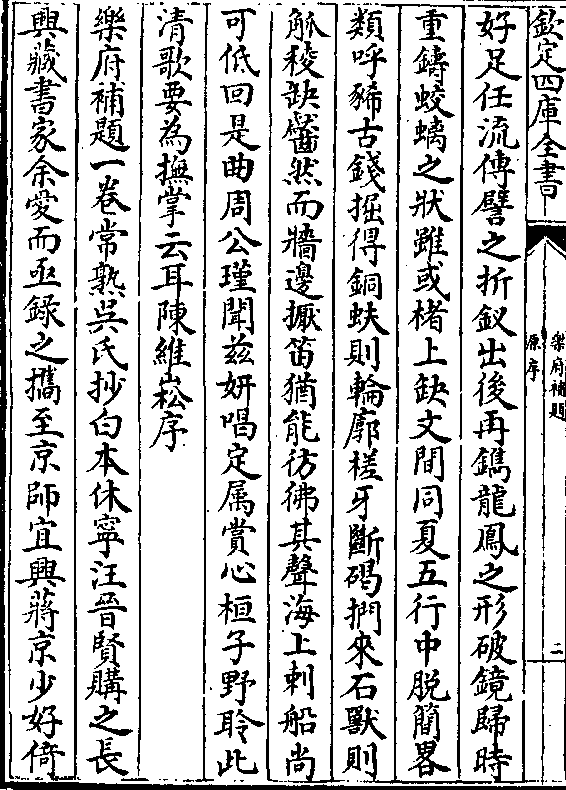 欽定四庫全書
樂府補題
原序
二
好足任流傳譬之折釵出後再鐫龍鳳之形破鏡歸時
重鑄蛟螭之狀雖或楮上缺文間同夏五行中脱簡畧
類呼豨古錢掘得銅蚨則輪廓槎牙斷碣捫來石獸則
觚稜缺齾然而牆邊擫笛猶能彷彿其聲海上刺船尚
可低回是曲周公瑾聞兹妍唱定属賞心桓子野聆此
清歌要為撫掌云耳陳維崧序
樂府補題一卷常熟吳氏抄白本休寧汪晉賢購之長
興藏書家余愛而亟錄之攜至京師宜興蔣京少好倚